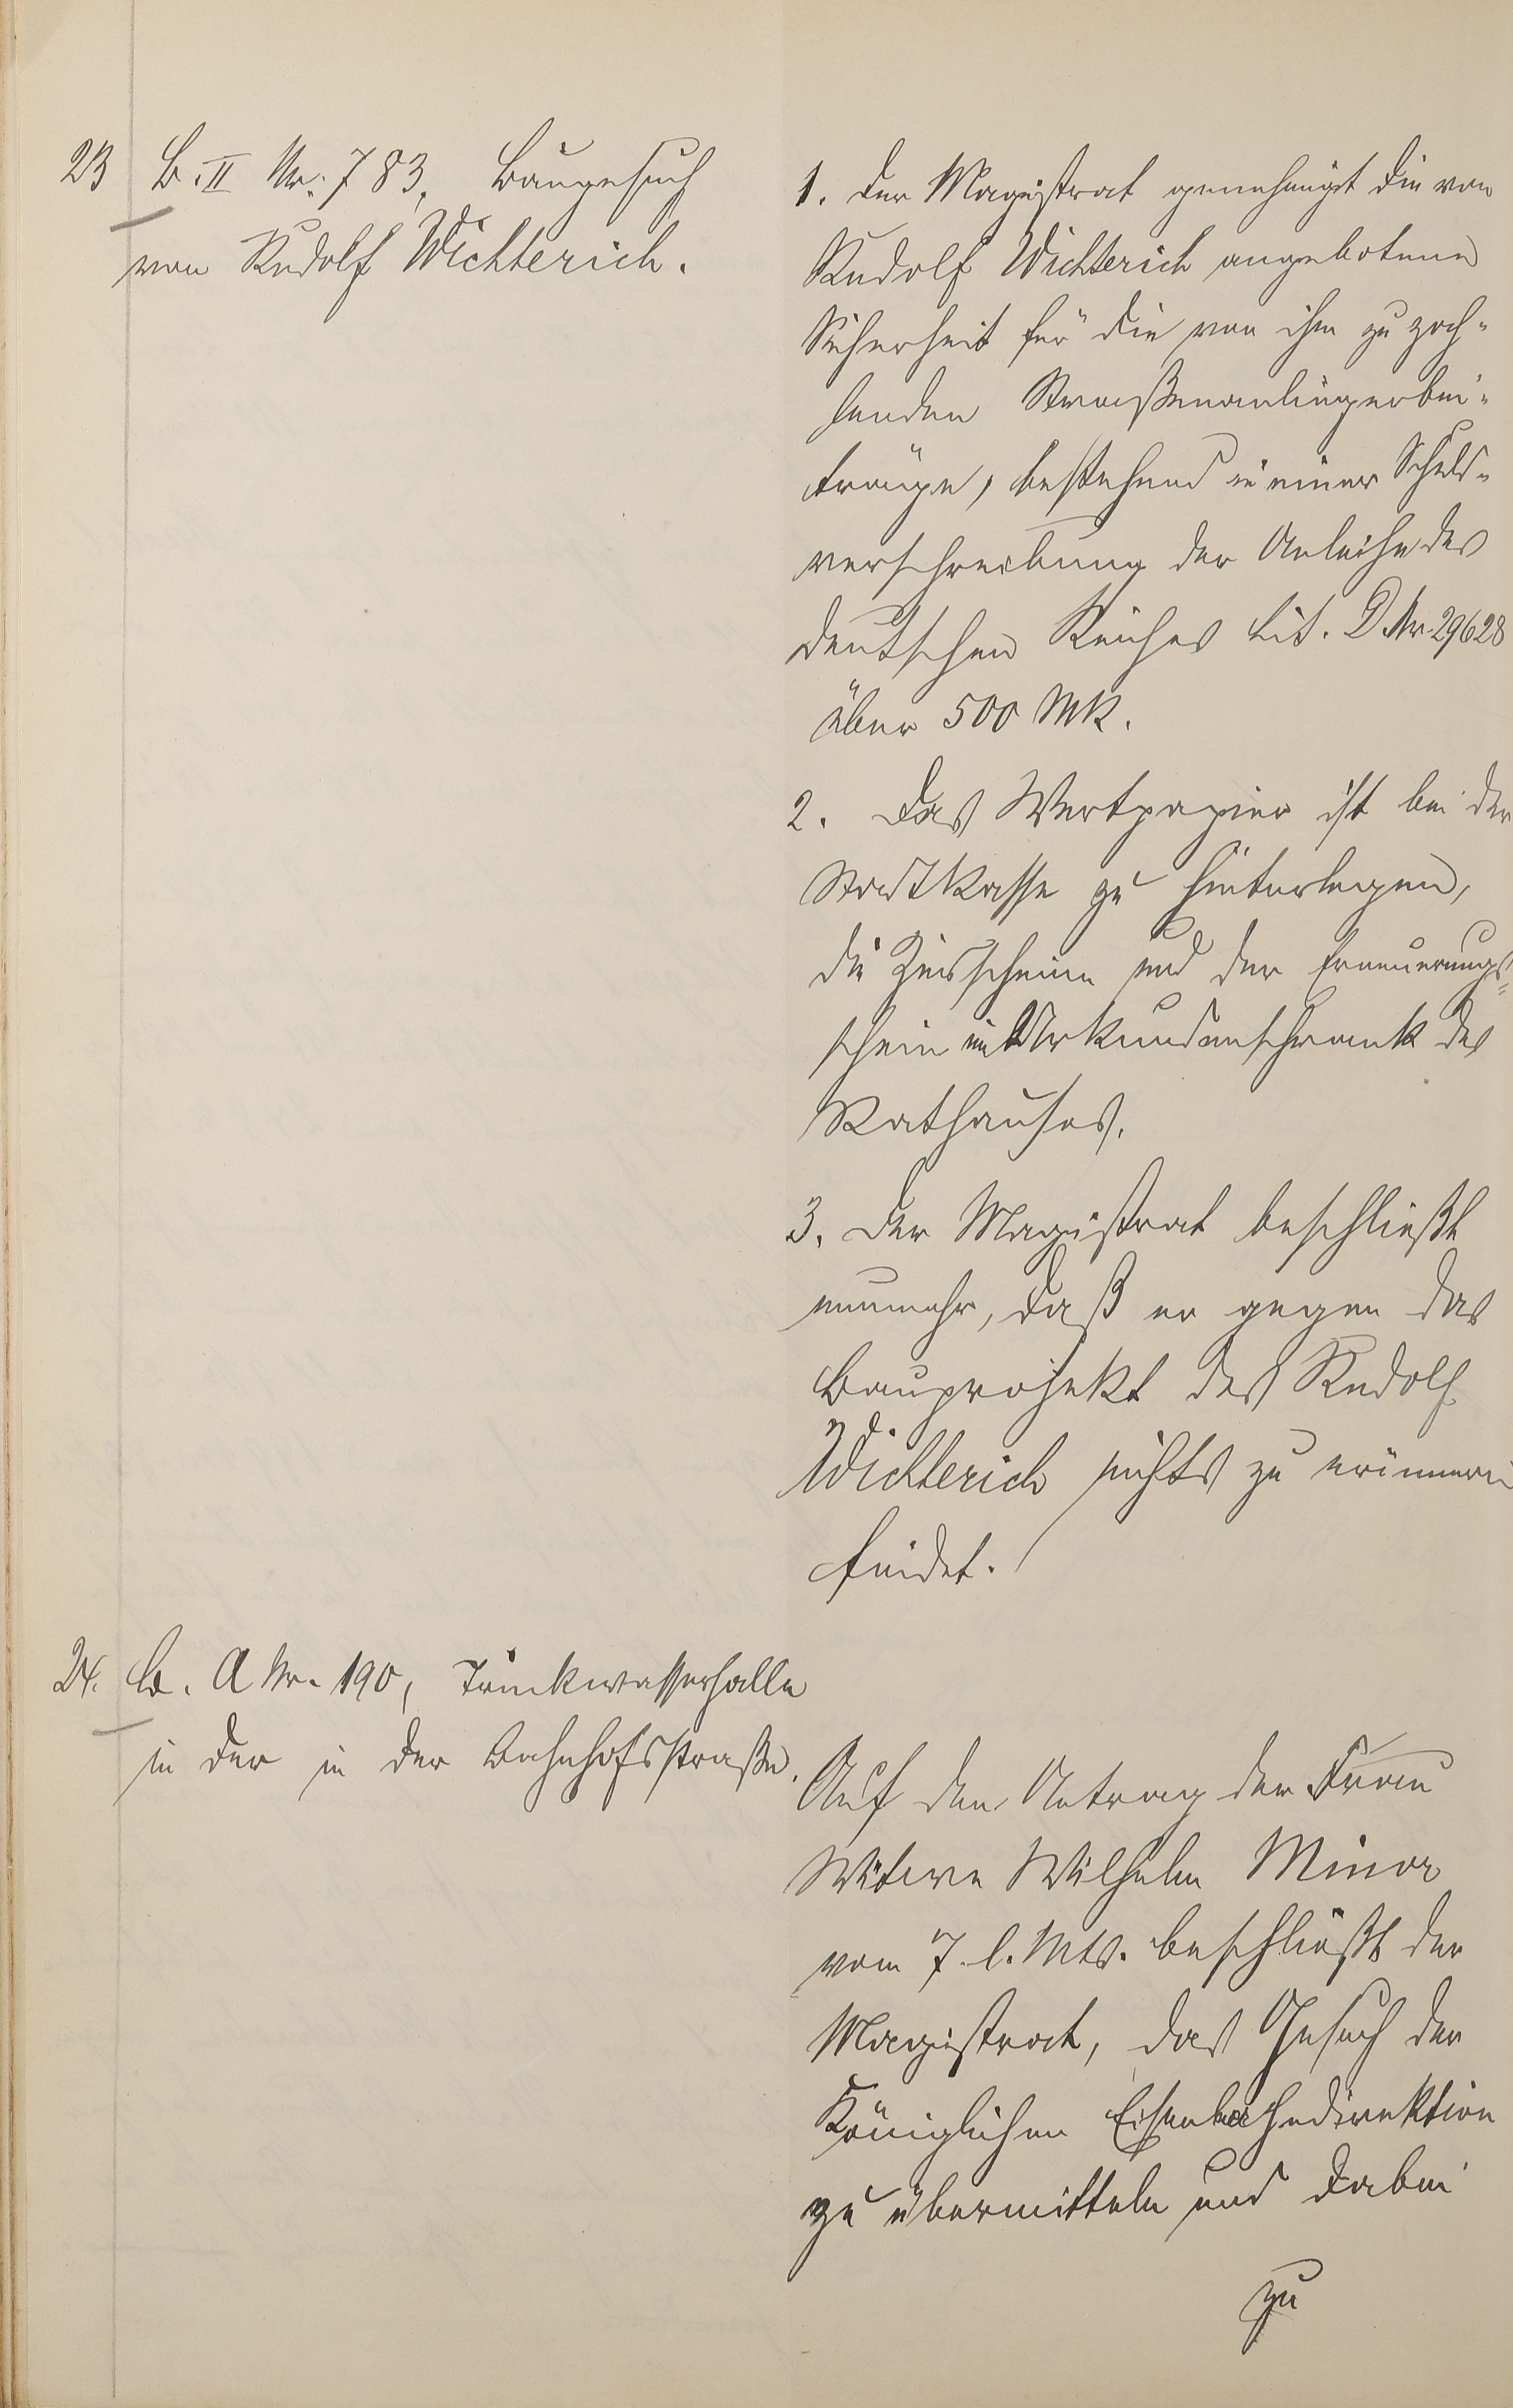 23 B. II Nr. 783, Baugesuch
von Rudolf Wichterich.
1. Der Magistrat genehmigt die von
Rudolf Wichterich angebotene
Sicherheit für die von ihm zu zah-
lenden Straßenanliegerbei-
träge, bestehend in einer Schuld-
verschreibung der Anleihe des
deutschen Reiches Lit. D Nr. 29628
über 500 Mk.
2. Das Wertpapier ist bei der
Stadtkasse zu hinterlegen,
die Zinsscheine und der Erneuerungs-
schein im Urkundenschrank des
Rathauses.
3. Der Magistrat beschließt
nunmehr, daß er gegen das
Bauprojekt des Rudolf
Wichterich nichts zu erinnern
findet.
24. B. A Nr. 190, Trinkwasserhalle
in der in der Bahnhofsstraße.
Auf den Antrag der Frau
Witwe Wilhelm Minor
vom 7. l. Mts. beschließt der
Magistrat, das Gesuch der
Königlichen Eisenbahndirektion
zu übermitteln und dabei
zu